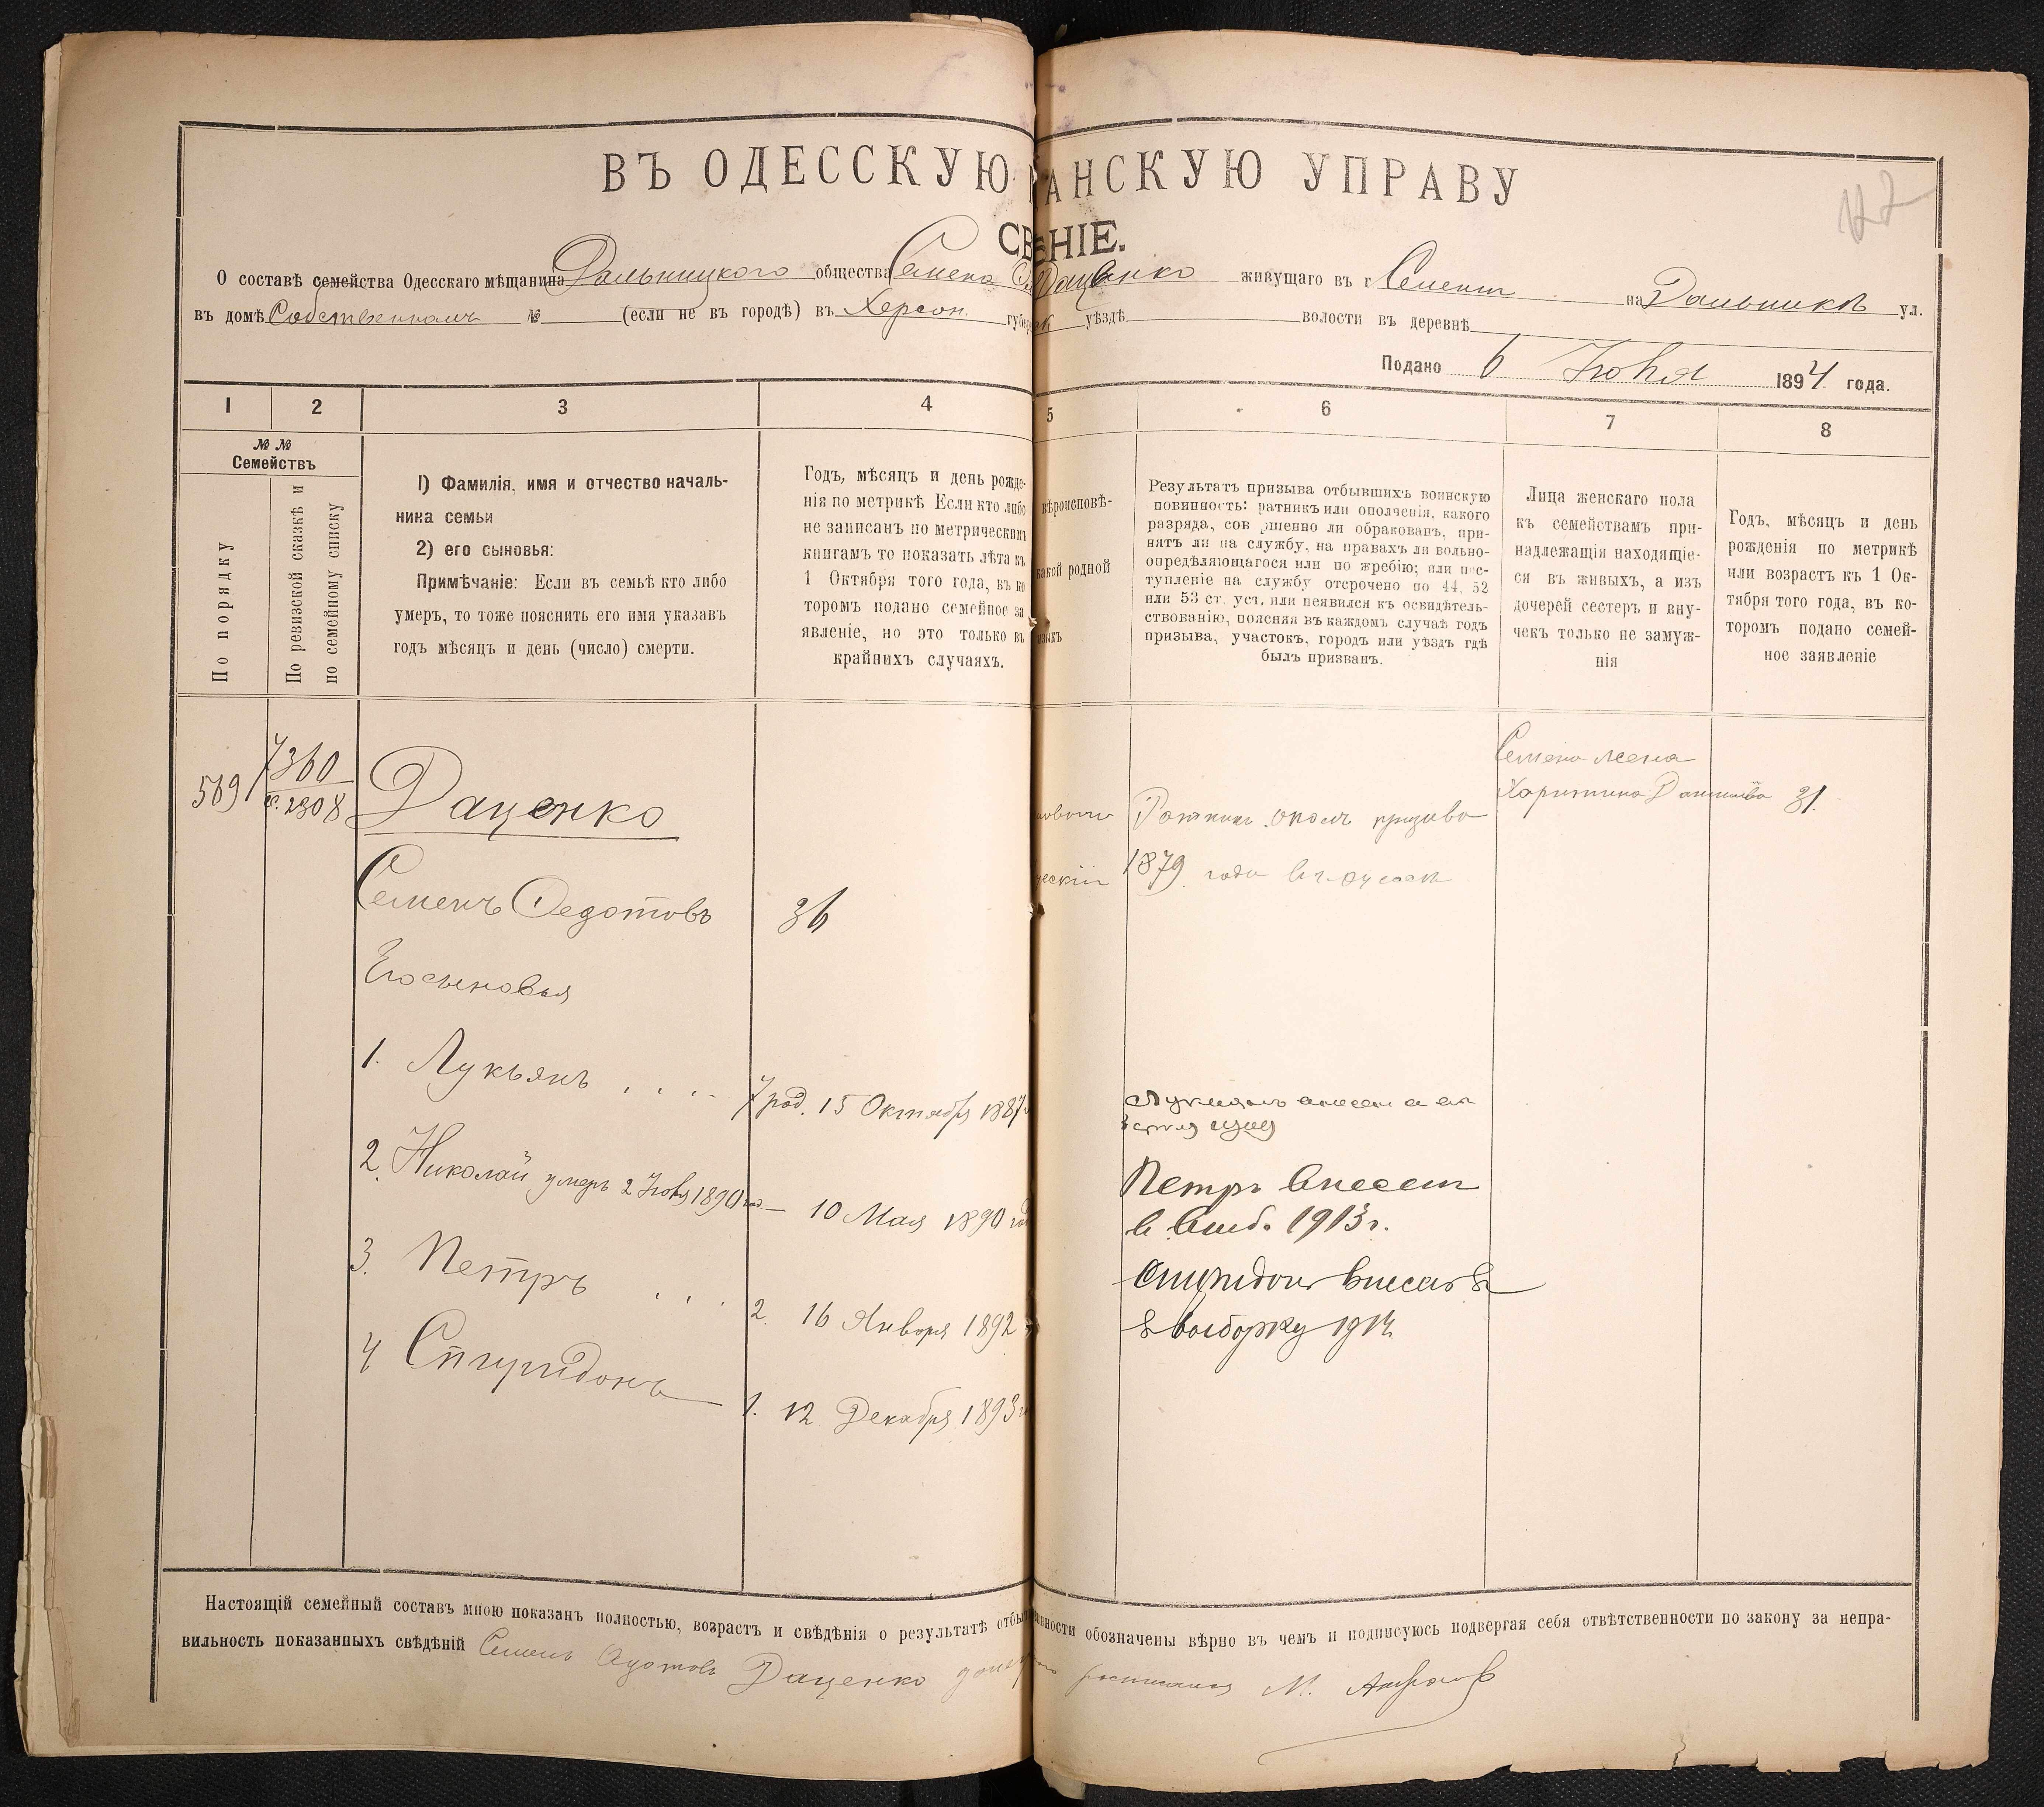 ВЪ ОДЕССКУЮ АНСКУЮ УПРАВУ
СВ ЕНІЕ.
О составѣ семейства Одесскаго мѣщанина Дальницкого общества Семена Даценко живущаго въ г на Дальникѣ ул.
въ домѣ Собственномъ № (если не въ городѣ) въ Херсон. губер уѣздѣ волости въ деревнѣ
Подано 6 Юня 1894 года.
1 2 3 4 5 6 7 8
№ №
Семействъ
По порядку
По ревизской сказкѣ и
по семейному списку
1) Фамилія, имя и отчество началь-
ника семьи
2) его сыновья:
Примѣчаніе: Если въ семьѣ кто либо
умеръ, то тоже пояснить его имя указавъ
годъ мѣсяцъ и день (число) смерти.
Годъ, мѣсяцъ и день рожде-
нія по метрикѣ Если кто либо
не записанъ по метрическимъ
книгамъ то показать лѣта къ
1 Октября того года, въ ко
торомъ подано семейное за
явленіе, но это только въ
крайнихъ случаяхъ.
вѣроисповѣ-
какой родной
языкъ
Результатъ призыва отбывшихъ воинскую
повинность: ратникъ или ополченія, какого
разряда, сов ршенно ли обракованъ, при-
нятъ ли на службу, на правахъ ли вольно-
опредѣляющагося или по жребію; или пос-
тупленіе на службу отсрочено по 44, 52
или 53 ст. уст. или неявился къ освидѣтель-
ствованію, поясняя въ каждомъ случаѣ годъ
призыва, участокъ, городъ или уѣздъ гдѣ
былъ призванъ.
Лица женскаго пола
къ семействамъ при-
надлежащія находящіе-
ся въ живыхъ, а изъ
дочерей сестеръ и вну-
чекъ только не замуж-
нія
Годъ, мѣсяцъ и день
рожденія по метрикѣ
или возрастъ къ 1 Ок-
тября того года, въ ко-
торомъ подано семей-
ное заявленіе
569
7360
с. 2308
Даценко
Семенъ Федотовъ 36
Его сыновья
1. Лукьянъ . . . . 7 род. 15 Октября 1887
2. Николай умеръ 2 Юня 1890 год — 10 Мая 1890 год
3. Петръ . . . 2. 16 Января 1892
4 Спиридонъ 1. 12 Декабря 1893
Ратник ополч призыва
1879 года
Семена жена
Харитина 31.
Петръ внесен
в выб. 1913 г.
Спиридон внесен в
выборку 1914
Настоящій семейный составъ мною показанъ полностью, возрастъ и свѣдѣнія о результатѣ отбы нности обозначены вѣрно въ чемъ и подписуюсь подвергая себя отвѣтственности по закону за непра-
вильность показанныхъ свѣдѣній Семенъ Федотовъ Даценко